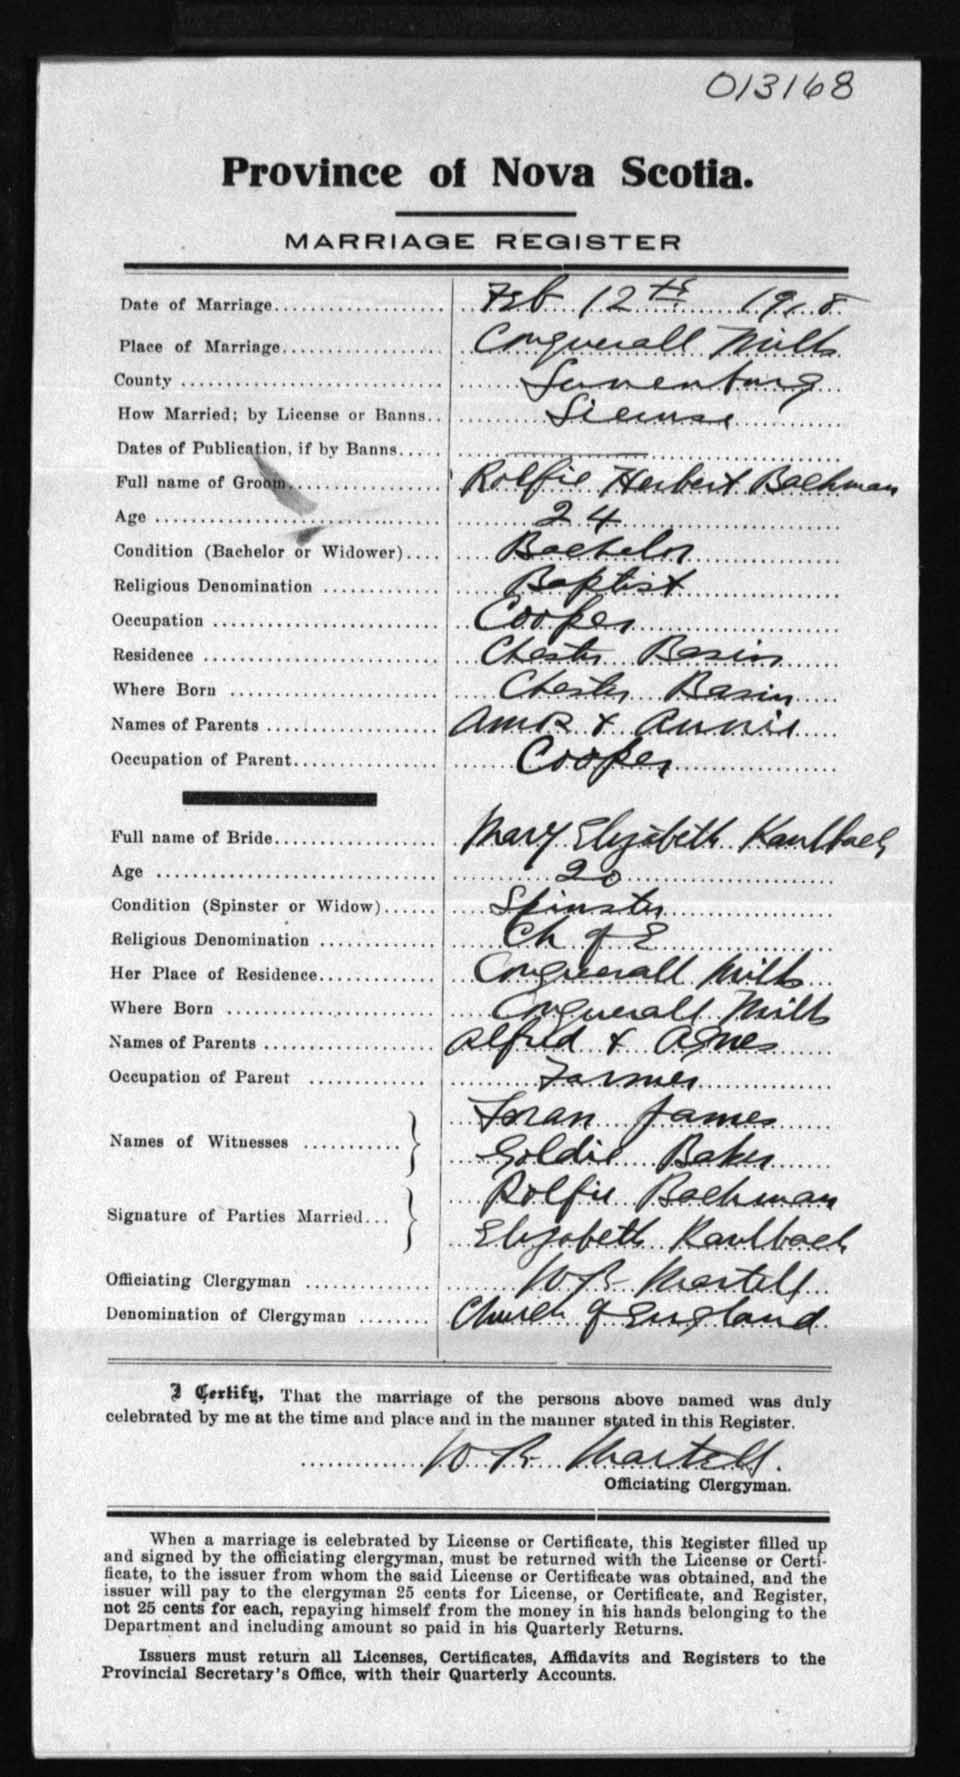 013168
Province of Nova Scotia.
MARRIAGE REGISTER
Date of Marriage.................... Feb 12th 1918
Place of Marriage.................. Conquerall Mills
County ........................... Lunenburg
How Married; by License or Banns.. License
Dates of Publication, if by Banns..... ———
Full name of Groom................ Rolfie Herbert Bachman
Age ............................. 24
Condition (Bachelor or Widower).... Bachelor
Religious Denomination ............ Baptist
Occupation ....................... Cooper
Residence ........................ Chester Basin
Where Born ..................... Chester Basin
Names of Parents .................. Amos & Annie
Occupation of Parent............... Cooper
Full name of Bride................. Mary Elizabeth Kaulbach
Age ............................. 20
Condition (Spinster or Widow)...... Spinster
Religious Denomination ............ Ch of E
Her Place of Residence............. Conquerall Mills
Where Born ..................... Conquerall Mills
Names of Parents .................. Alfred & Agnes
Occupation of Parent ............ Farmer
Names of Witnesses ........... } Foran James
Goldie Baker
Signature of Parties Married... } Rolfie Bachman
Elizabeth Kaulbach
Officiating Clergyman ............. W R Martell
Denomination of Clergyman ........ Church of England
I Certify, That the marriage of the persons above named was duly
celebrated by me at the time and place and in the manner stated in this Register.
W R Martell.
Officiating Clergyman.
When a marriage is celebrated by License or Certificate, this Register filled up
and signed by the officiating clergyman, must be returned with the License or Certi-
ficate, to the issuer from whom the said License or Certificate was obtained, and the
issuer will pay to the clergyman 25 cents for License, or Certificate, and Register,
not 25 cents for each, repaying himself from the money in his hands belonging to the
Department and including amount so paid in his Quarterly Returns.
Issuers must return all Licenses, Certificates, Affidavits and Registers to the
Provincial Secretary's Office, with their Quarterly Accounts.